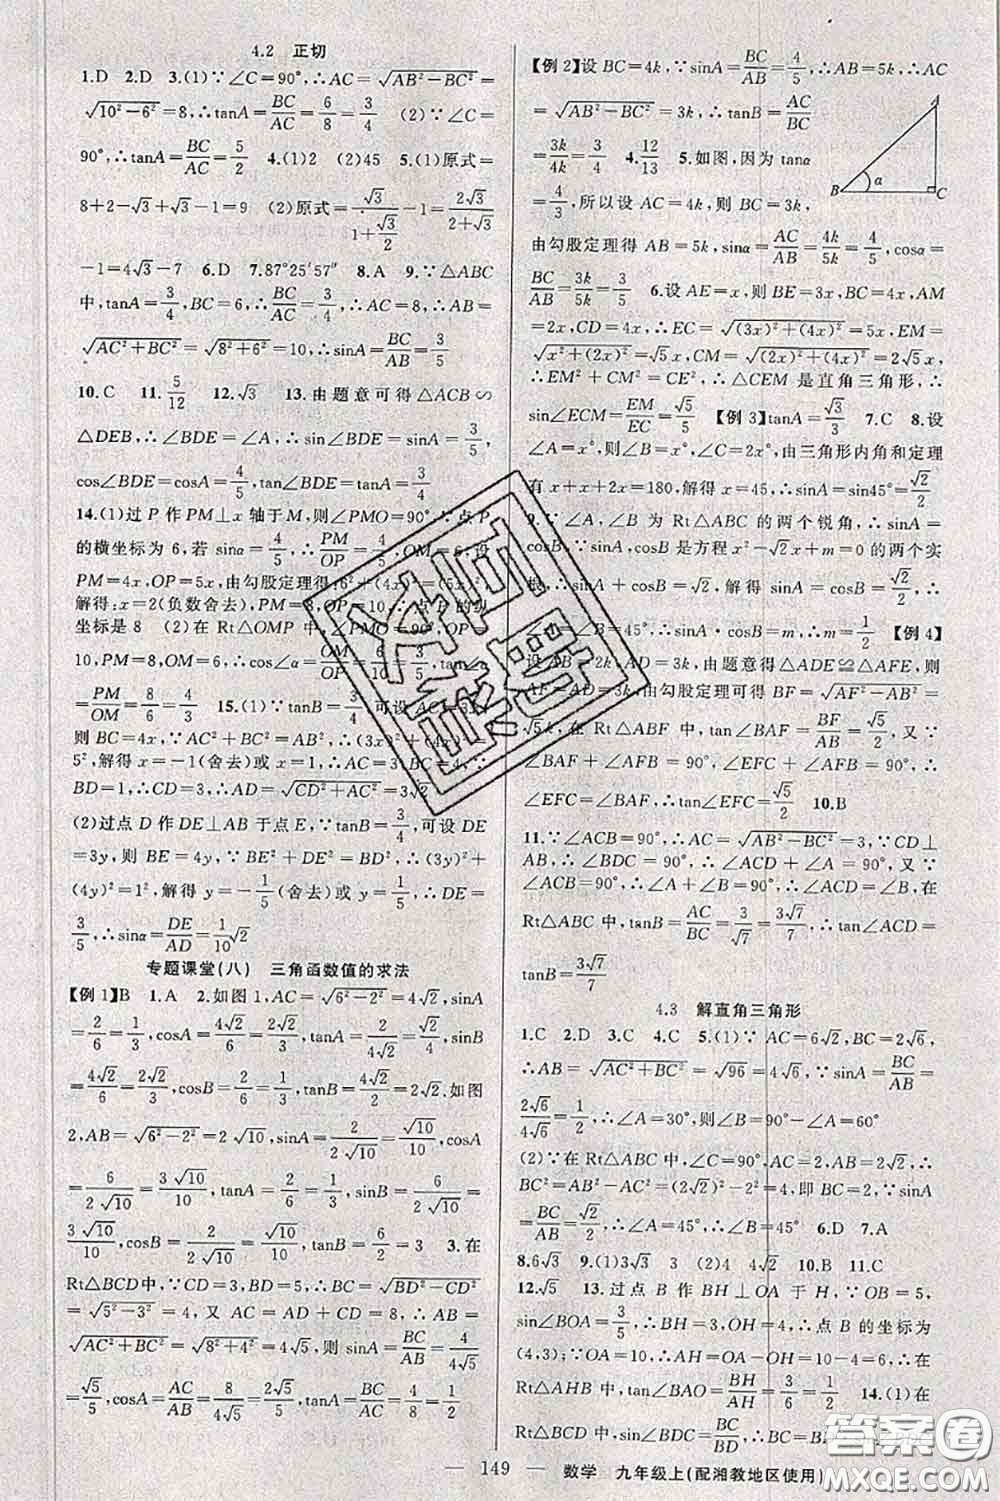 4.2 正切
1.D 2.D 3.(1)∵∠C=90°,∴AC=√(AB²-BC²)=
√(10²-6²)=8,∴tanA=BC/AC=6/8=3/4 (2)∵∠C=
90°,∴tanA=BC/AC=5/2 4.(1)2 (2)45 5.(1)原式=
8+2-√3+√3-1=9 (2)原式=√3/(1+√3/2)-1=2√3/(2+√3)
-1=4√3-7 6.D 7.87°25′57″ 8.A 9.∵△ABC
中,tanA=3/4,BC=6,∴BC/AC=3/4,∴AC=8,∴AB=
√(AC²+BC²)=√(8²+6²)=10,∴sinA=BC/AB=3/5
10.C 11.5/12 12.√3 13.由题意可得△ACB∽
△DEB,∴∠BDE=∠A,∴sin∠BDE=sinA=3/5,
cos∠BDE=cosA=4/5,tan∠BDE=
14.(1)过P作PM⊥x轴于M,则∠PMO=90°,∵点P
的横坐标为6,若sinα=4/5,∴PM/OP=4/5,∵OM=6,设
PM=4x,OP=5x,由勾股定理得6²+(4x)²=(5x)²,
解得:x=2(负数舍去),PM=8,OP=10,∴点P的纵
坐标是8 (2)在Rt△OMP中,∠PMO=90°,OP=
10,PM=8,OM=6,∴cosα=
=PM/OM=8/6=4/3 15.(1)∵tanB=3/4,可设AC=3x,
则BC=4x,∵AC²+BC²=AB²,∴(3x)²+(4x)²=
5²,解得x=-1(舍去)或x=1,∴AC=3,BC=4,∵
BD=1,∴CD=3,∴AD=√(CD²+AC²)=3√2
(2)过点D作DE⊥AB于点E,∵tanB=3/4,可设DE
=3y,则BE=4y,∵BE²+DE²=BD²,∴(3y)²+
(4y)²=1²,解得y=-1/5(舍去)或y=1/5,∴DE=
3/5,∴sinα=DE/AD=1/10√2
专题课堂(八) 三角函数值的求法
【例1】B 1.A 2.如图1,AC=√(6²-2²)=4√2,sinA
=2/6=1/3,cosA=4√2/6=2√2/3,tanA=2/4√2=√2/4,sinB=
4√2/6=2√2/3,cosB=2/6=1/3,tanB=4√2/2=2√2.如图
2,AB=√(6²-2²)=2√10,sinA=2/2√10=√10/10,cosA
=6/2√10=3√10/10,tanA=2/6=1/3,sinB=6/2√10=
3√10/10,cosB=2/2√10=√10/10,tanB=6/2=3 3.在
Rt△BCD中,∵CD=3,BD=5,∴BC=√(BD²-CD²)
=√(5²-3²)=4,又AC=AD+CD=8,∴AB=
√(AC²+BC²)=√(8²+4²)=4√5,则sinA=BC/AB=4/4√5
=√5/5,cosA=AC/AB=8/4√5=2√5/5,tanA=BC/AC=4/8=1/2
【例2】设BC=4k,∵sinA=BC/AB=4/5,∴AB=5k,∴AC
=√(AB²-BC²)=3k,∴tanB=AC/BC
=3k/4k=3/4 4.12/13 5.如图,因为tanα
=4/3,所以设AC=4k,则BC=3k,
由勾股定理得AB=5k,sinα=AC/AB=4k/5k=4/5,cosα=
BC/AB=3k/5k=3/5 6.设AE=x,则BE=3x,BC=4x,AM
=2x,CD=4x,∴EC=√((3x)²+(4x)²)=5x,EM=
√(x²+(2x)²)=√5x,CM=√((2x)²+(4x)²)=2√5x,
∴EM²+CM²=CE²,∴△CEM是直角三角形,∴
sin∠ECM=EM/EC=√5/5 【例3】tanA=√3/3 7.C 8.设
∠A=x°,则∠B=x°,∠C=2x°,由三角形内角和定理
有x+x+2x=180,解得x=45,∴sinA=sin45°=√2/2
9.∵∠A,∠B为Rt△ABC的两个锐角,∴sinA=
cosB,∵sinA,cosB是方程x²-√2x+m=0的两个实
根,∴sinA+cosB=√2,解得sinA=cosB=√2/2,∴
∠A=∠B=45°,∴sinA·cosB=m,∴m=1/2 【例4】
设 ,AD=3k,由题意得△ADE≌△AFE,则
AF=AD=3k,由勾股定理可得BF=√(AF²-AB²)=
√5k,在Rt△BAF中,tan∠BAF=BF/AB=√5/2,又∵
∠BAF+∠AFB=90°,∠EFC+∠AFB=90°,∴
∠EFC=∠BAF,∴tan∠EFC=√5/2 10.B
11.∵∠ACB=90°,∴AC=√(AB²-BC²)=3,∵CD⊥
AB,∴∠BDC=90°,∴∠ACD+∠A=90°,又∵
∠ACB=90°,∴∠B+∠A=90°,∴∠B=∠ACD,在
Rt△ABC中,tanB=AC/BC=3/√7=3√7/7,∴tan∠ACD=
tanB=3√7/7
4.3 解直角三角形
1.C 2.D 3.C 4.C 5.(1)∵AC=6√2,BC=2√6,
∴AB=√(AC²+BC²)=√96=4√6,∵sinA=BC/AB=
2√6/4√6=1/2,∴∠A=30°,则∠B=90°-∠A=60°
(2)∵在Rt△ABC中,∠C=90°,AC=2,AB=2√2,∴
BC²=AB²-AC²=(2√2)²-2²=4,即BC=2,∵sinA
=BC/AB=√2/2,∴∠A=45°,∴∠B=45° 6.D 7.A
8.6√3 9.(1)3√3 3 (2)4 4√2 10.B 11.C
12.√5 13.过点B作BH⊥OA于H,∵OB=5,
sin∠BOA=3/5,∴BH=3,OH=4,∴点B的坐标为
(4,3);∵OA=10,∴AH=OA-OH=10-4=6,∴在
Rt△AHB中,tan∠BAO=BH/AH=3/6=1/2 14.(1)在
Rt△BCD中,sin∠BDC=BC/BD,∴BC=BD
A
B
α
C
— 149 — 数学 九年级上(配湘教地区使用)
答案圈
MXQE.COM